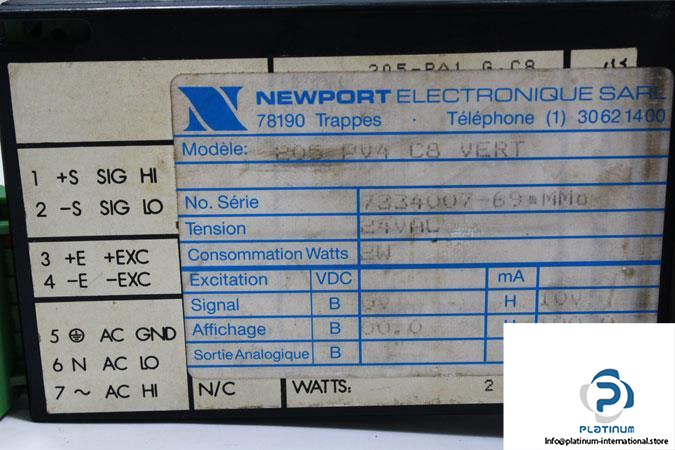 205-PA1 G.C8
NEWPORT ELECTRONIQUE SARL
78190 Trappes · Téléphone (1) 30 62 14 00
Modèle: 205 PV4 C8 VERT
1 +S SIG HI
2 -S SIG LO
3 +E +EXC
4 -E -EXC
5 AC GND
6 N AC LO
7 ~ AC HI
No. Série 7334007-69
Tension 24VAC
Consommation Watts 2W
Excitation VDC mA
Signal B 0V H 10V
Affichage B 00.0
Sortie Analogique B
N/C WATTS: 2
PLATINUM
Info@platinum-international.store